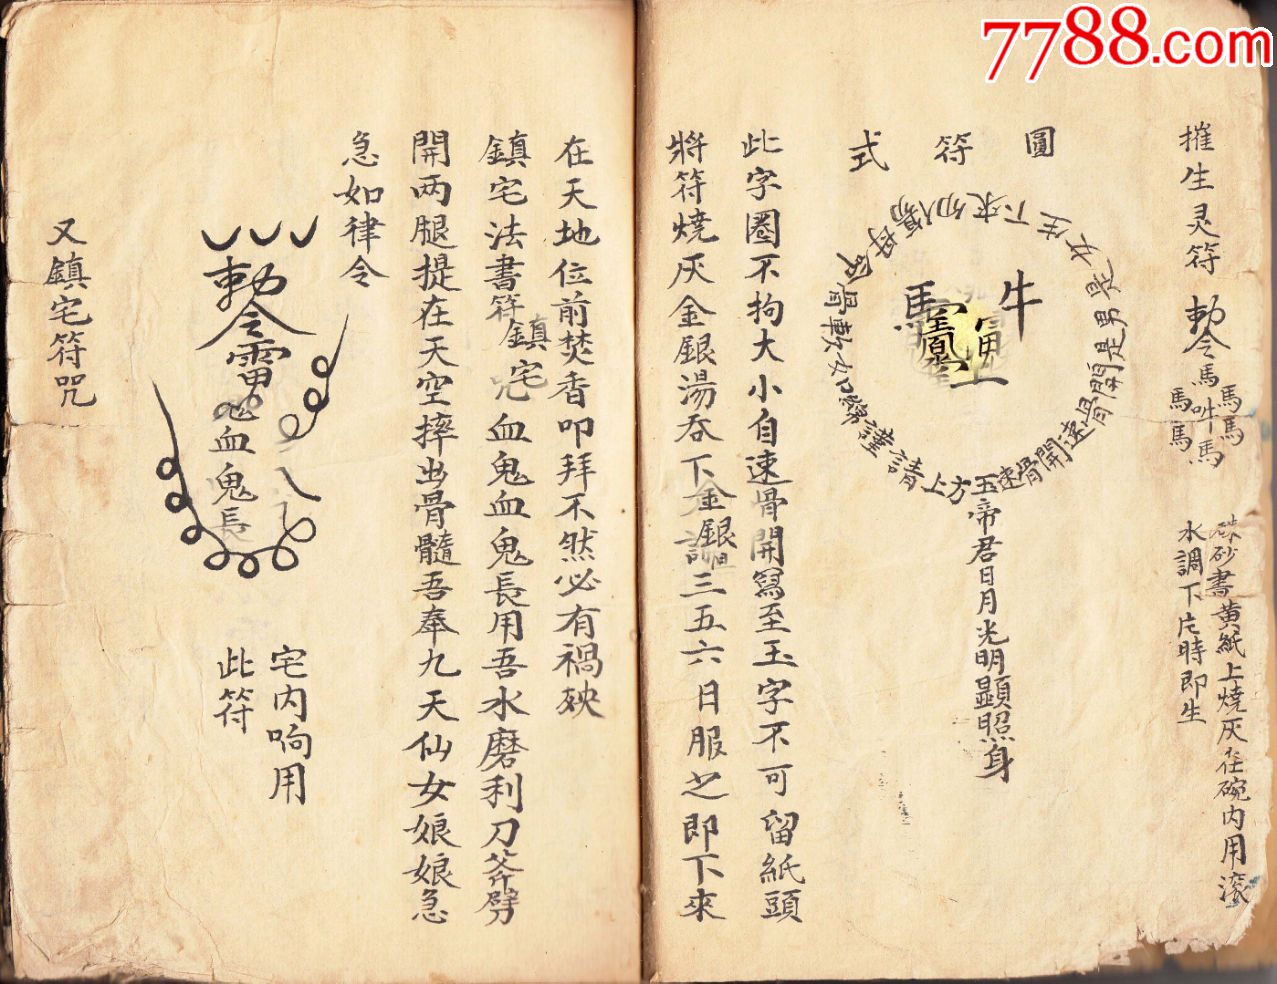 7788.com
摧生灵符
勅令
馬
馬 吽 馬
馬 馬
馬
硃砂書黄紙上燒灰在碗内用滚
水調下片時即生
圓符式
牛 馬
玉帝君日月光明顯照身
謹請上方
速骨開速骨開是男是女生下來
此字圈不拘大小自速骨開寫至玉字不可留紙頭
將符燒灰金銀湯吞下金銀三五六日服之即下來
在天地位前焚香叩拜不然必有禍殃
鎮宅法書符鎮宅咒血鬼血鬼長用吾水磨利刀斧劈
開两腿提在天空摔出骨髓吾奉九天仙女娘娘急
急如律令
勅令雷
血鬼長
宅内响用
此符
又鎮宅符咒